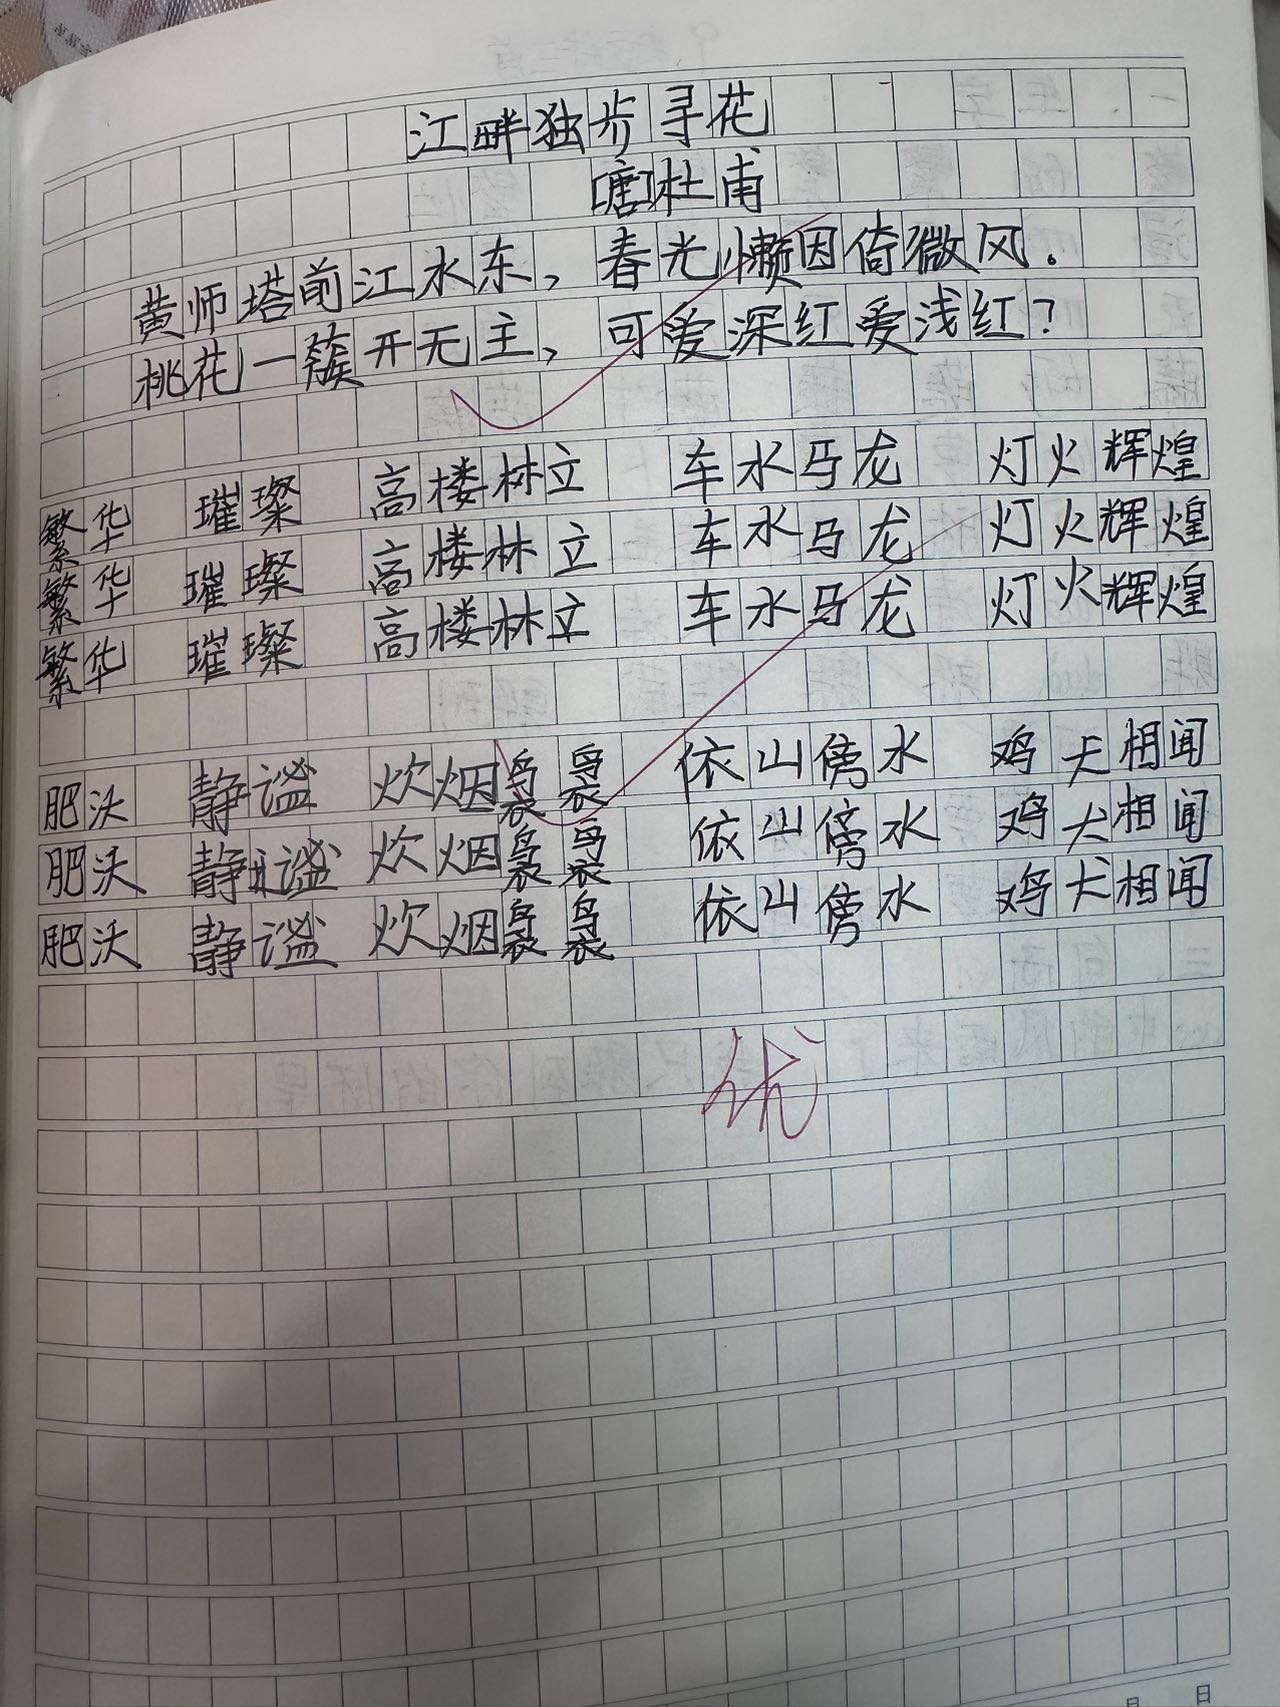 江畔独步寻花
[唐]杜甫
黄师塔前江水东，春光懒困倚微风。
桃花一簇开无主，可爱深红爱浅红？
繁华 璀璨 高楼林立 车水马龙 灯火辉煌
繁华 璀璨 高楼林立 车水马龙 灯火辉煌
繁华 璀璨 高楼林立 车水马龙 灯火辉煌
肥沃 静谧 炊烟袅袅 依山傍水 鸡犬相闻
肥沃 静谧 炊烟袅袅 依山傍水 鸡犬相闻
肥沃 静谧 炊烟袅袅 依山傍水 鸡犬相闻
优
月 日